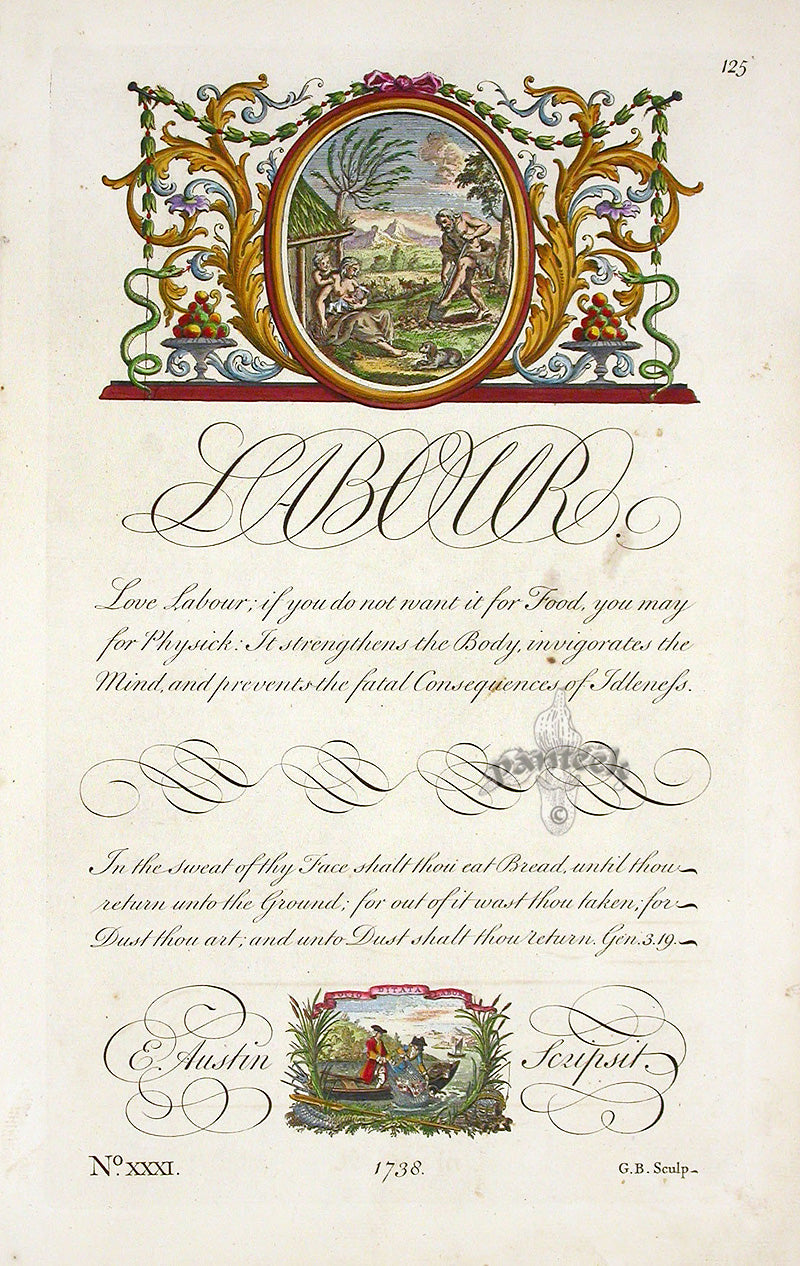 125
LABOUR.
Love Labour; if you do not want it for Food, you may
for Physick: It strengthens the Body, invigorates the
Mind, and prevents the fatal Consequences of Idleneſs.
panteek
©
In the sweat of thy Face shalt thou eat Bread, until thou
return unto the Ground; for out of it wast thou taken; for
Dust thou art; and unto Dust shalt thou return. Gen. 3.19.
DITATA LABOR
E. Austin Scripsit.
No. XXXI. 1738. G.B. Sculp